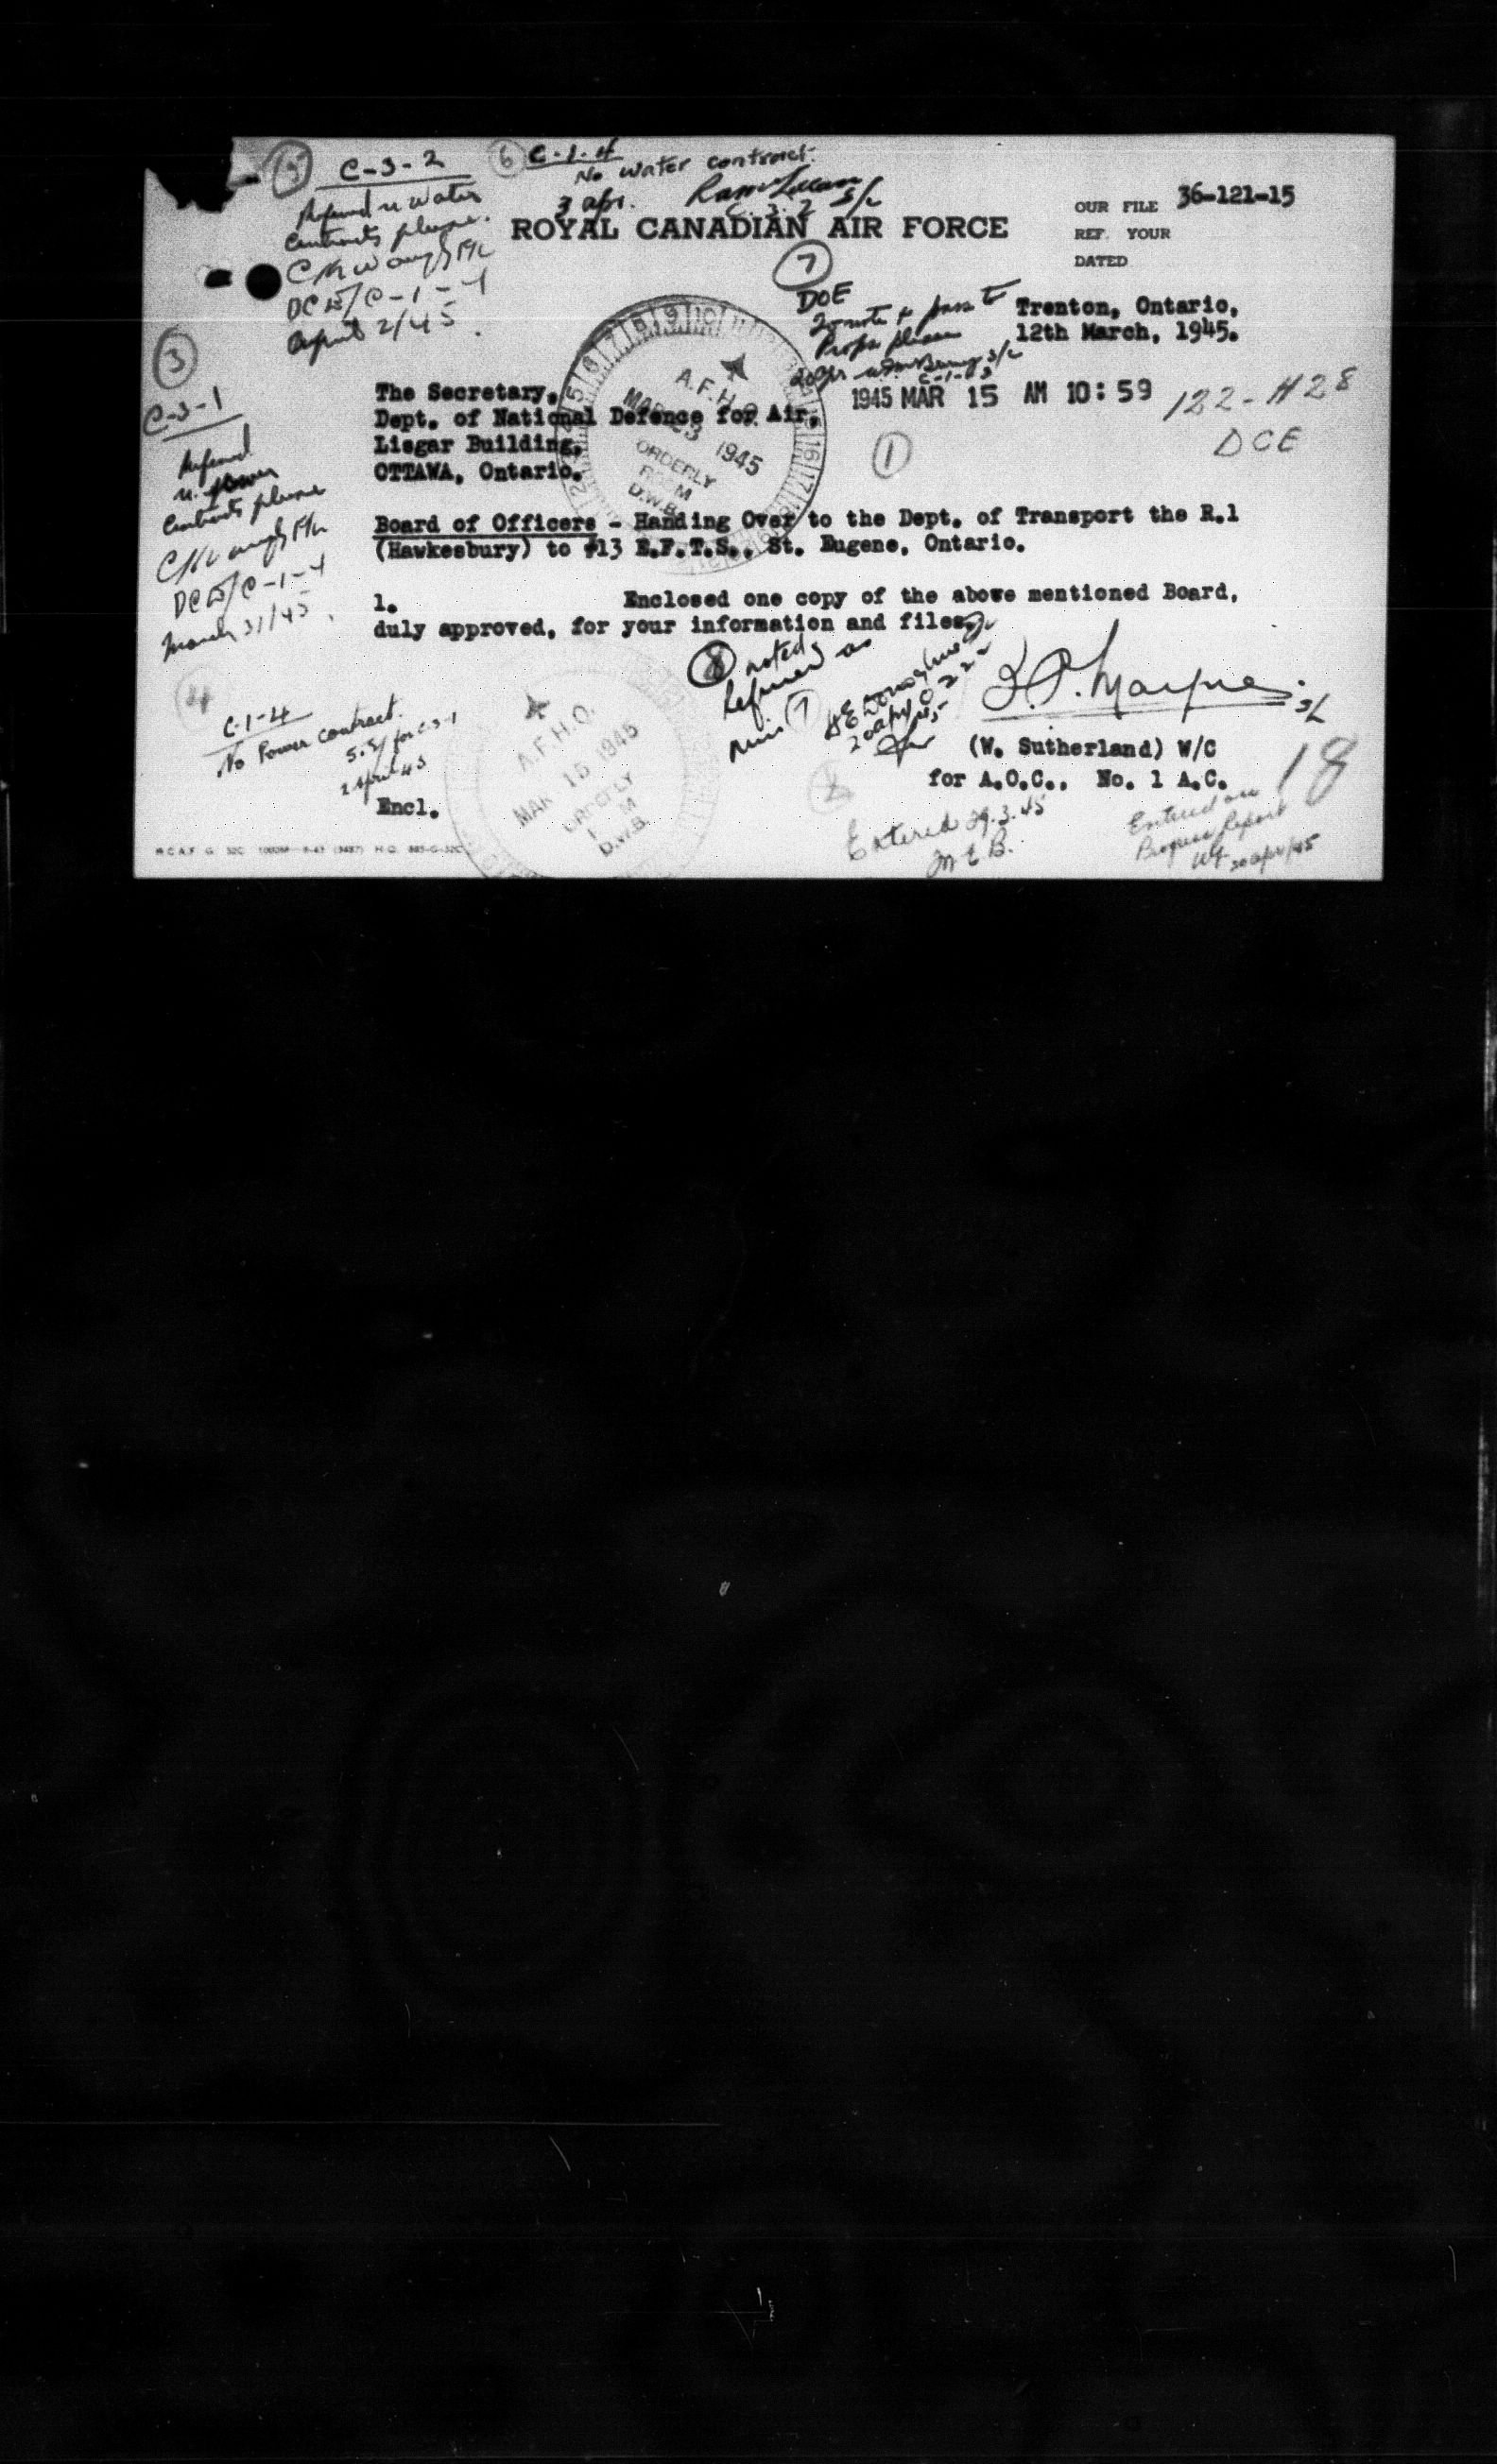 5 C-3-2
Referred re water
contracts please.
DCE/C-1-4
April 2/45
6 C-1-4
No water contract.
3 Apr.
C.3.2 S/L
ROYAL CANADIAN AIR FORCE
OUR FILE 36-121-15
REF. YOUR
DATED
7
DOE
To note & pass to
Props please
20 Apr
C-1-
Trenton, Ontario,
12th March, 1945.
1945 MAR 15 AM 10:59
122-H28
DCE
1
The Secretary,
Dept. of National Defence for Air,
Lisgar Building,
OTTAWA, Ontario.
A.F.H.Q.
MAR 23 1945
ORDERLY
ROOM
D.W.B.
3
C-3-1
Referred
re power
contracts please
DCE/C-1-4
March 31/45
Board of Officers - Handing Over to the Dept. of Transport the R.1
(Hawkesbury) to #13 E.F.T.S., St. Eugene, Ontario.
1. Enclosed one copy of the above mentioned Board,
duly approved, for your information and files.
4
C-1-4
No Power contract.
for C-3-1
2 April 45
8 noted
min 7
20 Apr 45
S/L
(W. Sutherland) W/C
for A.O.C., No. 1 A.C.
18
Encl.
A.F.H.Q.
MAR 15 1945
ORDERLY
ROOM
D.W.B.
2
Entered 29.3.45
M E B.
Entered on
Progress Report
20 Apr/45
R.C.A.F. G. 32C